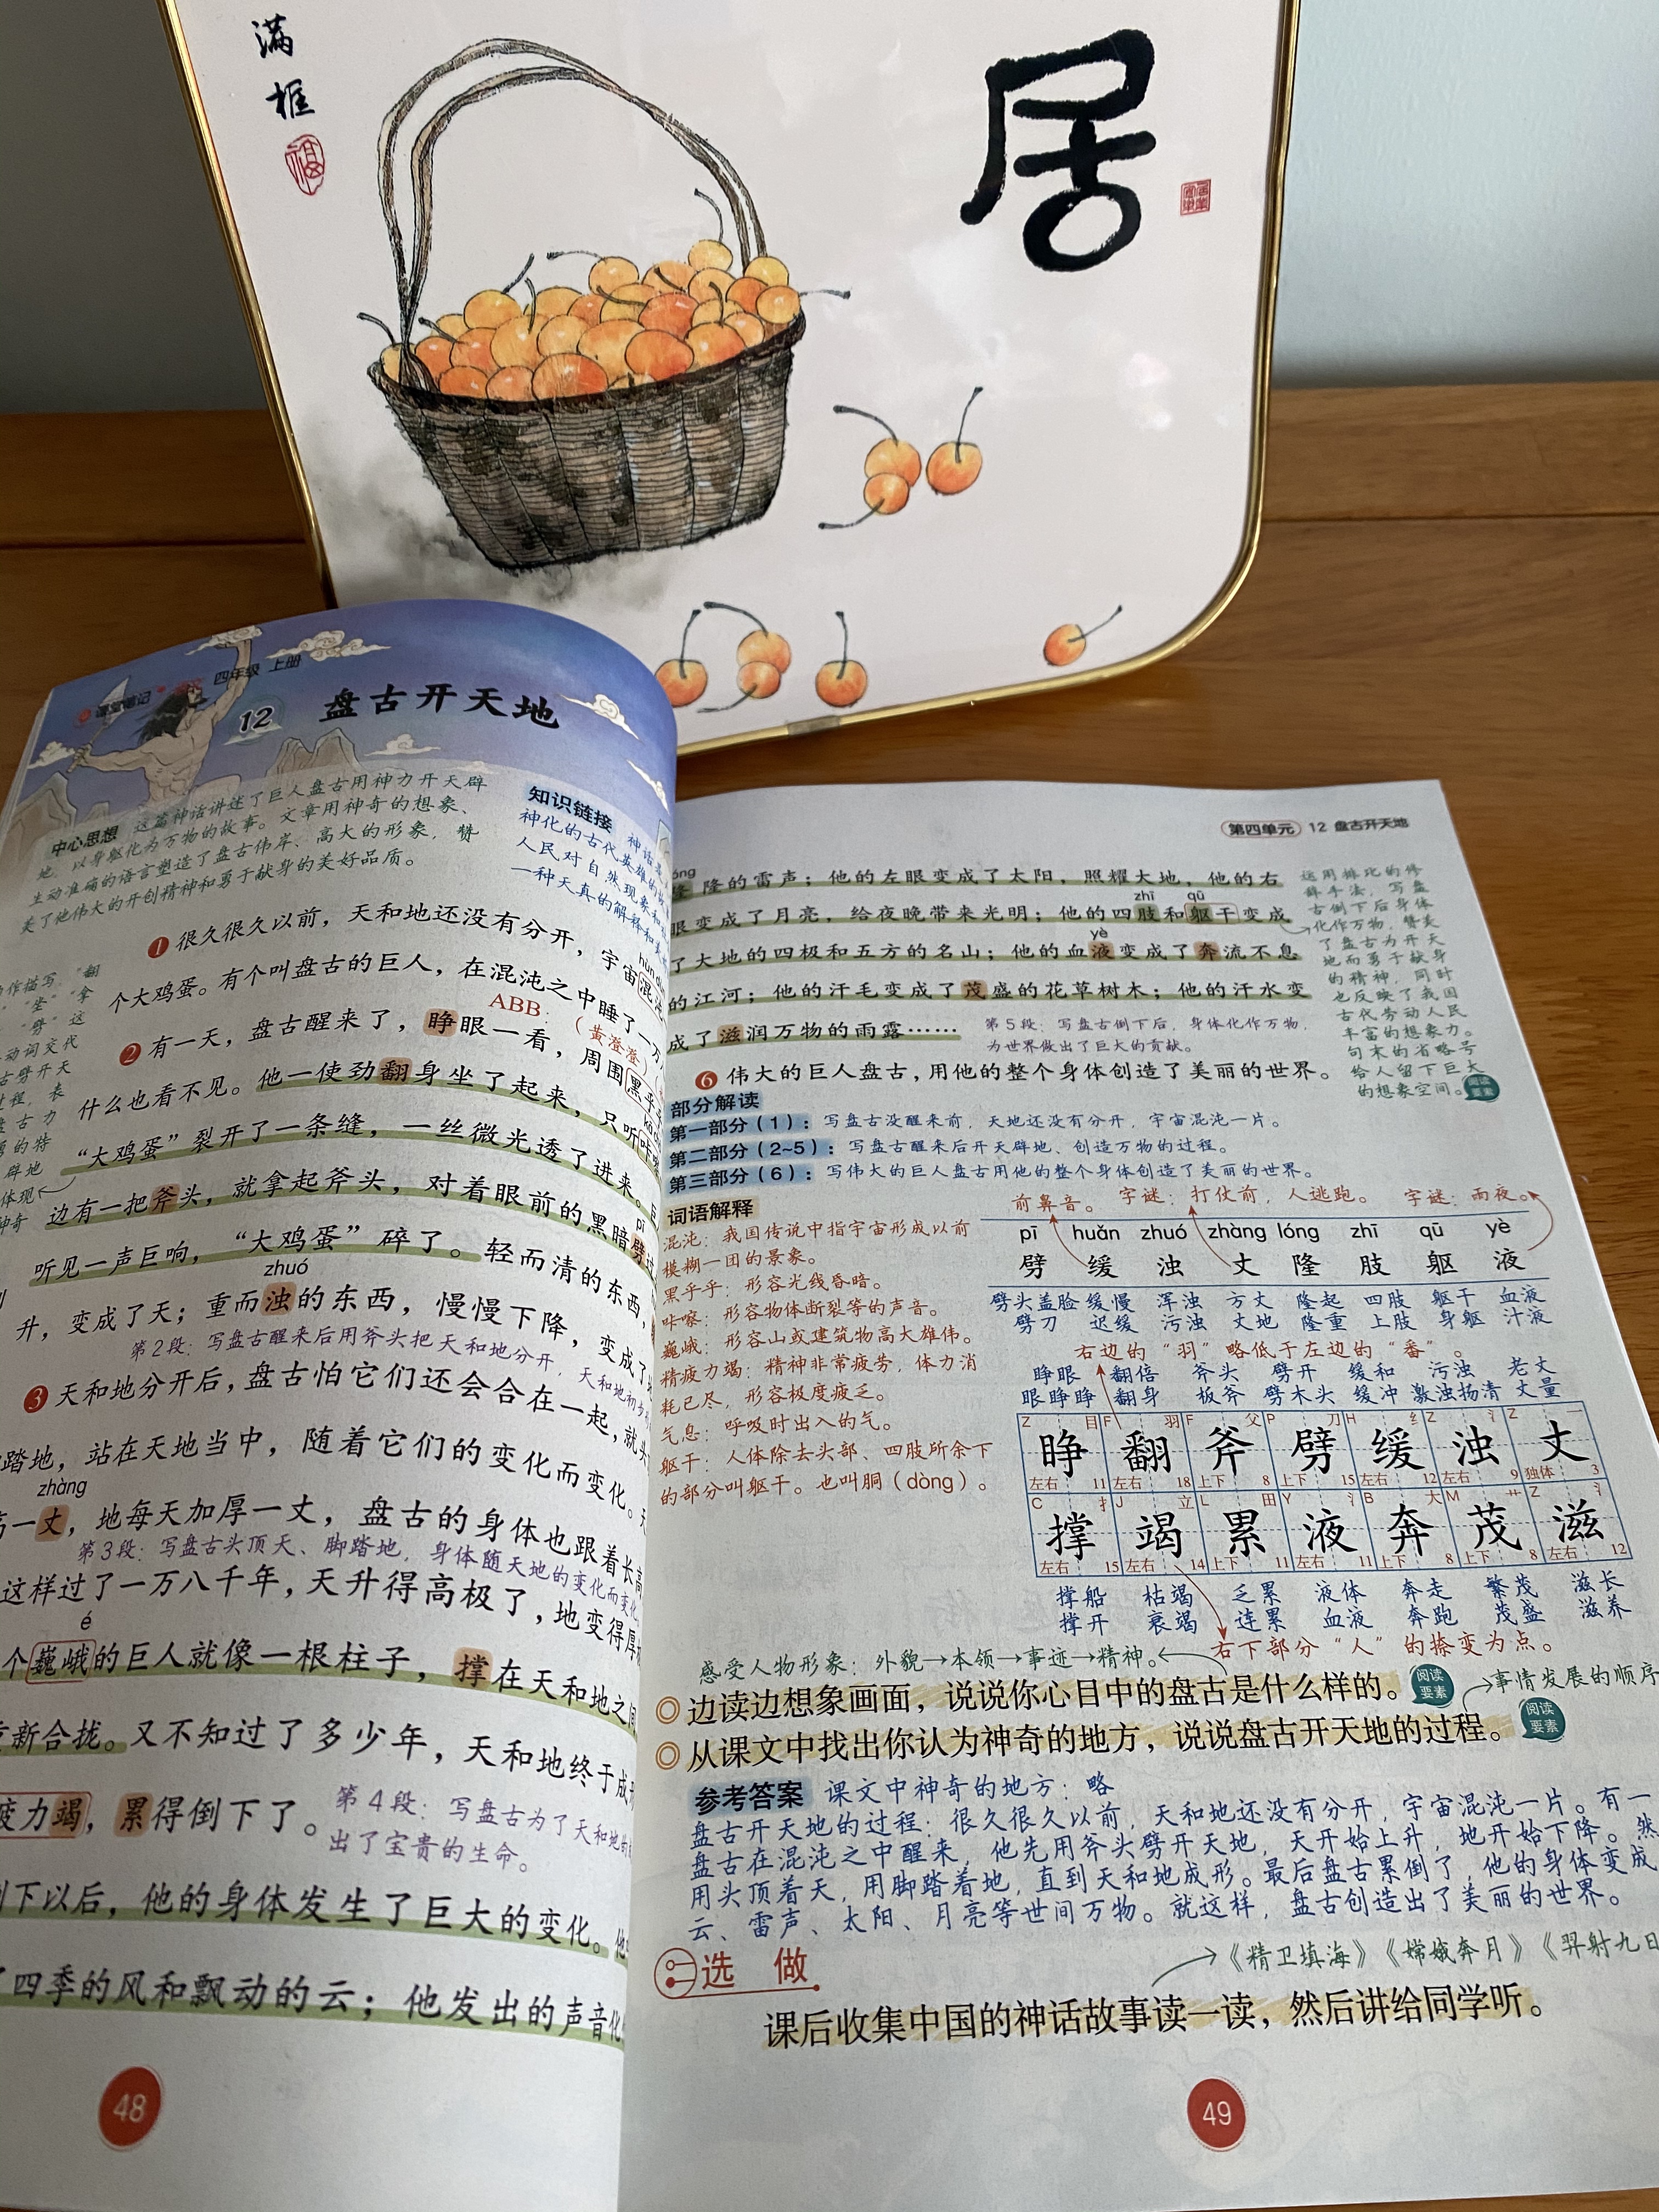 满
框
福
居
课堂笔记 四年级 上册
12 盘古开天地
中心思想 这篇神话讲述了巨人盘古用神力开天辟
地、以身躯化为万物的故事。文章用神奇的想象、
生动准确的语言塑造了盘古伟岸、高大的形象，赞
美了他伟大的开创精神和勇于献身的美好品质。
知识链接 神话是
神化的古代英雄的故
人民对自然现象和
一种天真的解释和美
❶ 很久很久以前，天和地还没有分开，宇宙混沌
个大鸡蛋。有个叫盘古的巨人，在混沌之中睡了一万
ABB：（黄澄澄）
❷ 有一天，盘古醒来了，睁眼一看，周围黑乎乎
什么也看不见。他一使劲翻身坐了起来，只听咔嚓
“大鸡蛋”裂开了一条缝，一丝微光透了进来。巨
边有一把斧头，就拿起斧头，对着眼前的黑暗劈过
pī
听见一声巨响，“大鸡蛋”碎了。轻而清的东西，
zhuó
升，变成了天；重而浊的东西，慢慢下降，变成了地
第2段：写盘古醒来后用斧头把天和地分开，天和地初步
❸ 天和地分开后，盘古怕它们还会合在一起，就头
踏地，站在天地当中，随着它们的变化而变化。天
zhàng
高一丈，地每天加厚一丈，盘古的身体也跟着长高
第3段：写盘古头顶天、脚踏地，身体随天地的变化而变化
这样过了一万八千年，天升得高极了，地变得厚极
é
个巍峨的巨人就像一根柱子，撑在天和地之间
重新合拢。又不知过了多少年，天和地终于成形
疲力竭，累得倒下了。
第4段：写盘古为了天和地的
出了宝贵的生命。
倒下以后，他的身体发生了巨大的变化。他
了四季的风和飘动的云；他发出的声音化
48
作描写。“翻
”“坐”“拿
”“劈”这
动词交代
古劈开天
过程，表
盘古力
的特
辟地
体现
神奇
第四单元 12 盘古开天地
隆隆的雷声；他的左眼变成了太阳，照耀大地，他的右
zhī qū
眼变成了月亮，给夜晚带来光明；他的四肢和躯干变成
yè
了大地的四极和五方的名山；他的血液变成了奔流不息
的江河；他的汗毛变成了茂盛的花草树木；他的汗水变
成了滋润万物的雨露……
第5段：写盘古倒下后，身体化作万物，
为世界做出了巨大的贡献。
❻ 伟大的巨人盘古，用他的整个身体创造了美丽的世界。
运用排比的修
辞手法，写盘
古倒下后身体
化作万物，赞美
了盘古为开天
地而勇于献身
的精神，同时
也反映了我国
古代劳动人民
丰富的想象力。
句末的省略号
给人留下巨大
的想象空间。
阅读要素
部分解读
第一部分（1）：写盘古没醒来前，天地还没有分开，宇宙混沌一片。
第二部分（2~5）：写盘古醒来后开天辟地、创造万物的过程。
第三部分（6）：写伟大的巨人盘古用他的整个身体创造了美丽的世界。
词语解释
混沌：我国传说中指宇宙形成以前
模糊一团的景象。
黑乎乎：形容光线昏暗。
咔嚓：形容物体断裂等的声音。
巍峨：形容山或建筑物高大雄伟。
精疲力竭：精神非常疲劳，体力消
耗已尽，形容极度疲乏。
气息：呼吸时出入的气。
躯干：人体除去头部、四肢所余下
的部分叫躯干。也叫胴（dòng）。
前鼻音。 字谜：打仗前，人逃跑。 字谜：雨夜。
pī huǎn zhuó zhàng lóng zhī qū yè
劈 缓 浊 丈 隆 肢 躯 液
劈头盖脸 缓慢 浑浊 方丈 隆起 四肢 躯干 血液
劈刀 迟缓 污浊 丈地 隆重 上肢 身躯 汁液
右边的“羽”略低于左边的“番”。
睁眼 翻倍 斧头 劈开 缓和 污浊 老丈
眼睁睁 翻身 板斧 劈木头 缓冲 激浊扬清 丈量
Z 目 F 羽 F 父 P 刀 H 纟 Z 氵 Z 一
睁 翻 斧 劈 缓 浊 丈
左右 11 左右 18 上下 8 上下 15 左右 12 左右 9 独体 3
C 扌 J 立 L 田 Y 氵 B 大 M 艹 Z 氵
撑 竭 累 液 奔 茂 滋
左右 15 左右 14 上下 11 左右 11 上下 8 上下 8 左右 12
撑船 枯竭 乏累 液体 奔走 繁茂 滋长
撑开 衰竭 连累 血液 奔跑 茂盛 滋养
右下部分“人”的捺变为点。
感受人物形象：外貌→本领→事迹→精神。
◎ 边读边想象画面，说说你心目中的盘古是什么样的。
阅读要素
事情发展的顺序
◎ 从课文中找出你认为神奇的地方，说说盘古开天地的过程。
阅读要素
参考答案 课文中神奇的地方：略
盘古开天地的过程：很久很久以前，天和地还没有分开，宇宙混沌一片。有一
盘古在混沌之中醒来，他先用斧头劈开天地，天开始上升，地开始下降。然
用头顶着天，用脚踏着地，直到天和地成形。最后盘古累倒了，他的身体变成
云、雷声、太阳、月亮等世间万物。就这样，盘古创造出了美丽的世界。
选做
→《精卫填海》《嫦娥奔月》《羿射九日
课后收集中国的神话故事读一读，然后讲给同学听。
49